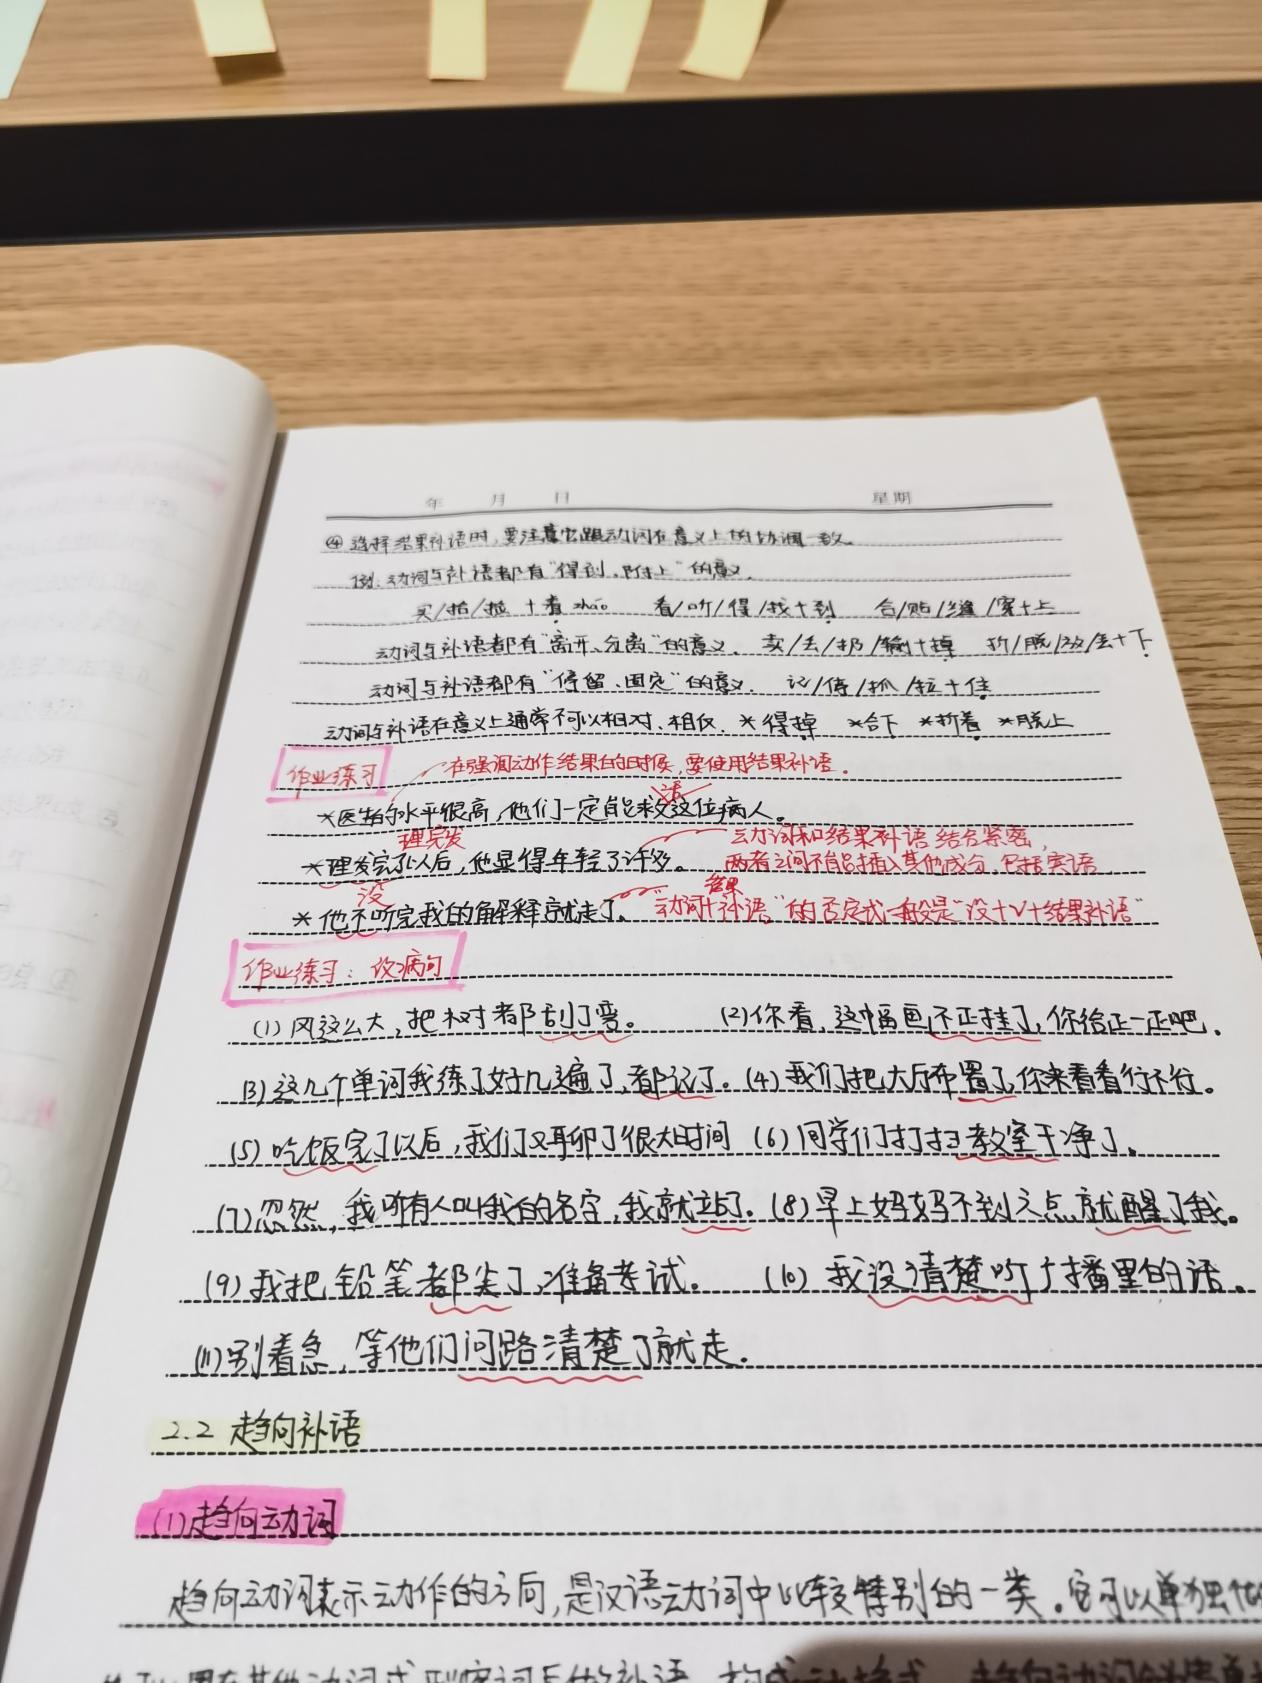 年 月 日 星期
④ 选择结果补语时,要注意它跟动词在意义上的协调一致。
例:动词与补语都有“得到、附上”的意义。
买/拾/捡+着zháo 看/听/得/找+到 合/贴/缝/穿+上
动词与补语都有“离开、分离”的意义、卖/丢/扔/输+掉 折/脱/放/丢+下
动词与补语都有“停留、固定”的意义、记/停/抓/拉+住
动词与补语在意义上通常不可以相对、相反、*得掉 *合下 *折着 *脱上
作业练习 在强调动作结果的时候,要使用结果补语。
活
*医生的水平很高,他们一定能救这位病人。
理完发 动词和结果补语结合紧密,
*理发完了以后,他显得年轻了许多。 两者之间不能插入其他成分,包括宾语
没 结果
*他不听完我的解释就走了。“动词+补语”的否定式一般是“没+V+结果补语”
作业练习:改病句
(1)风这么大,把树都刮了弯。 (2)你看,这幅画不正挂了,你给正一正吧.
(3)这几个单词我练了好几遍了,都记了.(4)我们把大厅布置了,你来看看行不行。
(5)吃饭完了以后,我们又聊了很大时间 (6)同学们打扫教室干净了。
(7)忽然,我听有人叫我的名字,我就站了.(8)早上妈妈不到六点,就醒了我。
(9)我把铅笔都尖了,准备考试. (10) 我没清楚听广播里的话。
(11)别着急,等他们问路清楚了就走.
2.2 趋向补语
(1)趋向动词
趋向动词表示动作的方向,是汉语动词中比较特别的一类.它可以单独